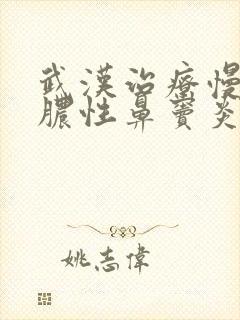 武漢治療慢
膿性鼻竇炎
姚志偉